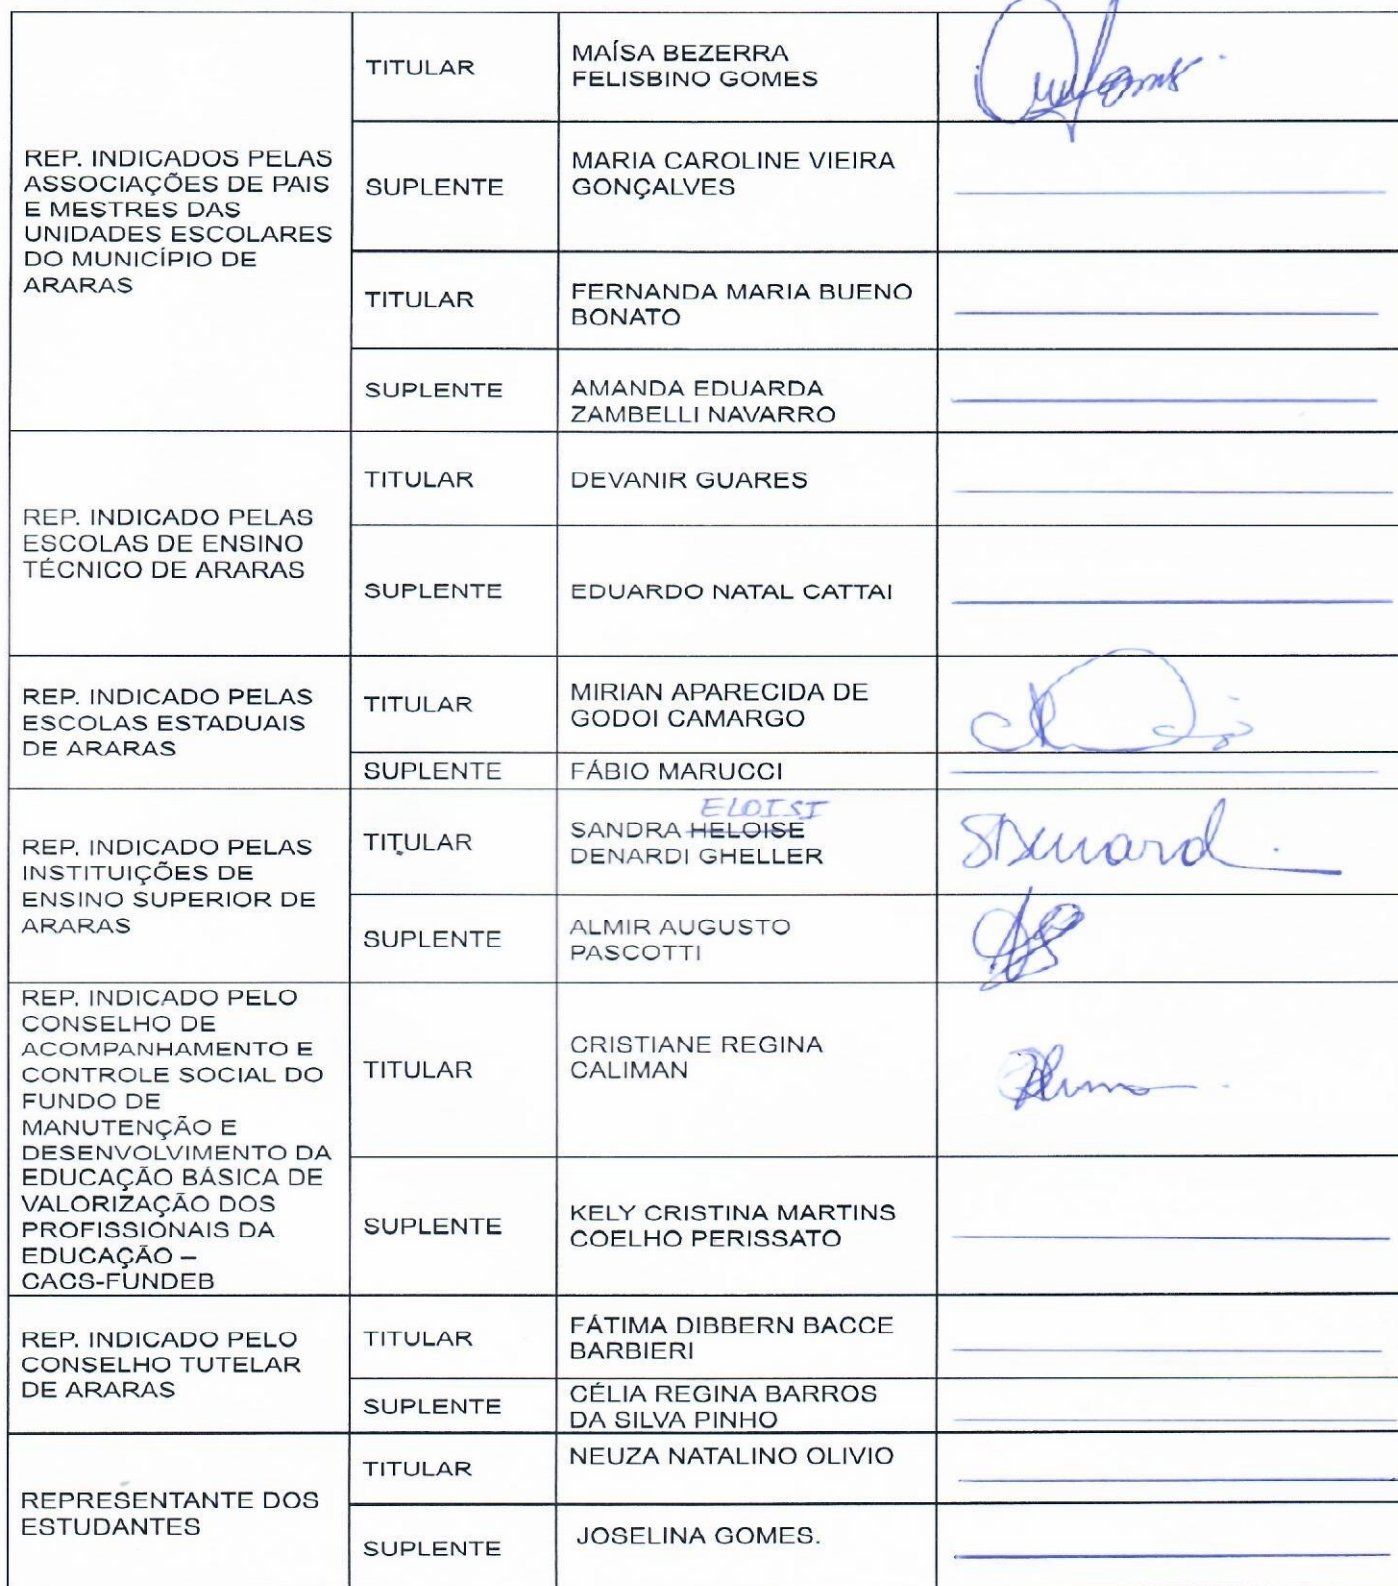 REP. INDICADOS PELAS
ASSOCIAÇÕES DE PAIS
E MESTRES DAS
UNIDADES ESCOLARES
DO MUNICÍPIO DE
ARARAS
TITULAR
MAÍSA BEZERRA
FELISBINO GOMES
SUPLENTE
MARIA CAROLINE VIEIRA
GONÇALVES
TITULAR
FERNANDA MARIA BUENO
BONATO
SUPLENTE
AMANDA EDUARDA
ZAMBELLI NAVARRO
REP. INDICADO PELAS
ESCOLAS DE ENSINO
TÉCNICO DE ARARAS
TITULAR
DEVANIR GUARES
SUPLENTE
EDUARDO NATAL CATTAI
REP. INDICADO PELAS
ESCOLAS ESTADUAIS
DE ARARAS
TITULAR
MIRIAN APARECIDA DE
GODOI CAMARGO
SUPLENTE
FÁBIO MARUCCI
REP. INDICADO PELAS
INSTITUIÇÕES DE
ENSINO SUPERIOR DE
ARARAS
TITULAR
ELOISI
SANDRA HELOISE
DENARDI GHELLER
SUPLENTE
ALMIR AUGUSTO
PASCOTTI
REP. INDICADO PELO
CONSELHO DE
ACOMPANHAMENTO E
CONTROLE SOCIAL DO
FUNDO DE
MANUTENÇÃO E
DESENVOLVIMENTO DA
EDUCAÇÃO BÁSICA DE
VALORIZAÇÃO DOS
PROFISSIONAIS DA
EDUCAÇÃO –
CACS-FUNDEB
TITULAR
CRISTIANE REGINA
CALIMAN
SUPLENTE
KELY CRISTINA MARTINS
COELHO PERISSATO
REP. INDICADO PELO
CONSELHO TUTELAR
DE ARARAS
TITULAR
FÁTIMA DIBBERN BACCE
BARBIERI
SUPLENTE
CÉLIA REGINA BARROS
DA SILVA PINHO
REPRESENTANTE DOS
ESTUDANTES
TITULAR
NEUZA NATALINO OLIVIO
SUPLENTE
JOSELINA GOMES.